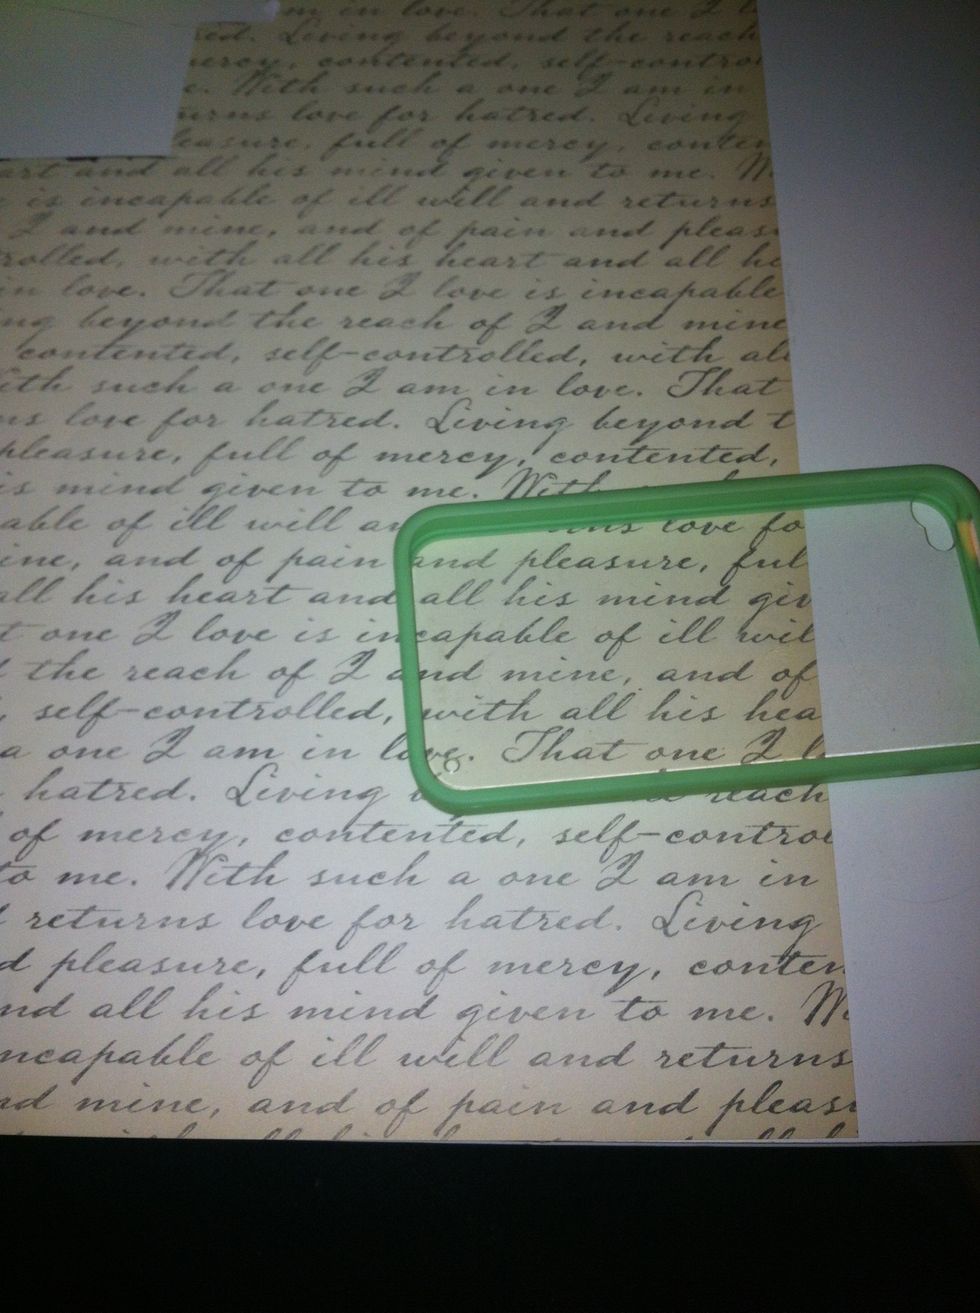 m in love. That one I l
ed. Living beyond the reach
ercy, contented, self-contro
e. With such a one I am in
urns love for hatred. Living
easure, full of mercy, conten
art and all his mind given to me. W
is incapable of ill will and returns
I and mine, and of pain and pleas
rolled, with all his heart and all hi
in love. That one I love is incapable
ng beyond the reach of I and mine
contented, self-controlled, with al
ith such a one I am in love. That
ns love for hatred. Living beyond t
pleasure, full of mercy, contented,
is mind given to me. With
able of ill will an ns love fo
ine, and of pain and pleasure, ful
all his heart and all his mind giv
t one I love is incapable of ill wil
the reach of I and mine, and of
, self-controlled, with all his hea
a one I am in love. That one I l
hatred. Living reach
of mercy, contented, self-contro
to me. With such a one I am in
returns love for hatred. Living
d pleasure, full of mercy, conten
nd all his mind given to me. W
ncapable of ill will and returns
nd mine, and of pain and pleas